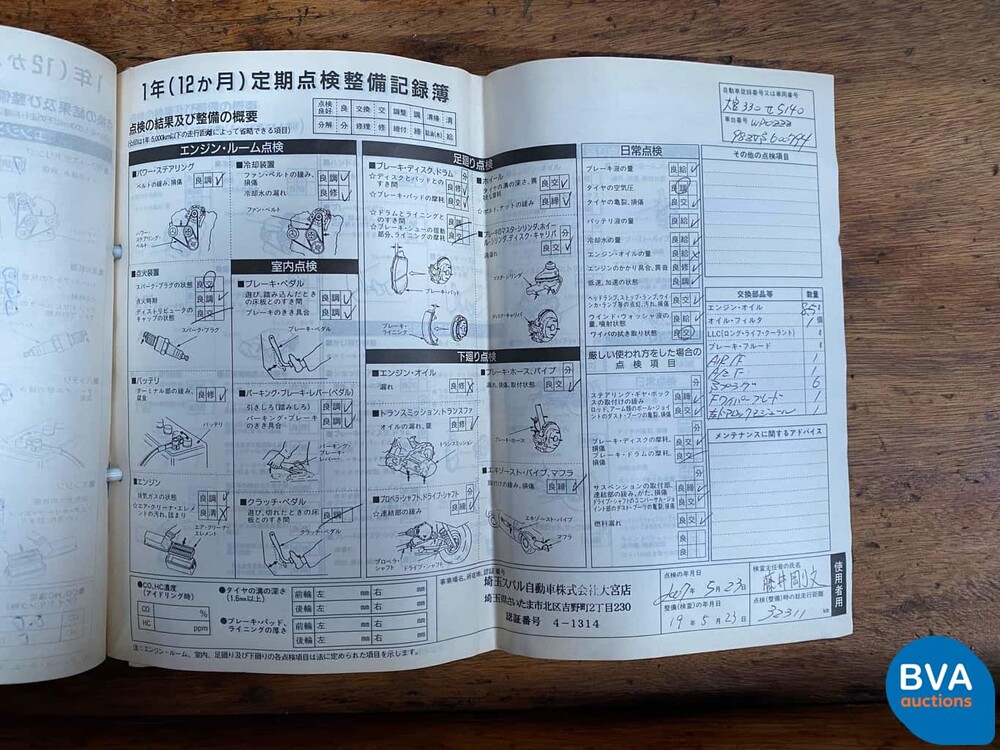 1年(12か月)定期点検整備記録簿
点検の結果及び整備の概要
(☆印は1年 5,000km以下の走行距離によって省略できる項目)
点検良好 良 交換 交 調整 調 清掃 清
分解 分 修理 修 締付 締 給油(水) 給
エンジン・ルーム点検
■パワー・ステアリング
ベルトの緩み、損傷
良 調
パワー・ステアリング・ベルト
■冷却装置
ファン・ベルトの緩み、損傷
良 調
冷却水の漏れ
良 修
ファン・ベルト
■点火装置
スパーク・プラグの状態
点火時期
良 調
ディストリビュータのキャップの状態
スパーク・プラグ
■バッテリ
ターミナル部の緩み、腐食
良 修
バッテリ
■エンジン
排気ガスの状態
良 調
☆エア・クリーナ・エレメントの汚れ、詰まり
良 清
エア・クリーナ・エレメント
室内点検
■ブレーキ・ペダル
遊び、踏み込んだときの床板とのすき間
良 調
ブレーキのきき具合
良 調
ブレーキ・ペダル
■パーキング・ブレーキ・レバー(ペダル)
引きしろ(踏みしろ)
良 調
パーキング・ブレーキのきき具合
良 調
パーキング・ブレーキ・レバー
■クラッチ・ペダル
遊び、切れたときの床板とのすき間
良 調
クラッチ・ペダル
足廻り点検
■ブレーキ・ディスク、ドラム
分
☆ディスクとパッドとのすき間
良 修
☆ブレーキ・パッドの摩耗
良 交
☆ドラムとライニングとのすき間
☆ブレーキ・シューの摺動部分、ライニングの摩耗
ブレーキ・パッド
ブレーキ・ライニング
■ホイール
良 交
☆ボルト、ナットの緩み
良 締
分
良 交
マスタ・シリンダ
ディスク・キャリパ
下廻り点検
■エンジン・オイル
漏れ
良 修
■トランスミッション、トランスファ
☆オイルの漏れ、量
良 修
トランスミッション
■プロペラ・シャフト、ドライブ・シャフト
☆連結部の緩み
良 締
プロペラ・シャフト
ドライブ・シャフト
■ブレーキ・ホース、パイプ
分
漏れ、損傷、取付状態
良 交
ブレーキ・ホース
■エキゾースト・パイプ、マフラ
取付けの緩み、損傷
良 締
エキゾースト・パイプ
マフラ
日常点検
ブレーキ液の量
良 給
タイヤの空気圧
良 調
タイヤの亀裂、損傷
良 交
バッテリ液の量
良 給
冷却水の量
良 給
エンジン・オイルの量
良 給
エンジンのかかり具合、異音
良 修
低速、加速の状態
良 調
ヘッドランプ、ストップ・ランプ、ウインカ・ランプ等の点灯、汚れ、損傷
良 交
ウインド・ウォッシャ液の量、噴射状態
良 給
ワイパの拭き取り状態
良 交
厳しい使われ方をした場合の点検項目
日常点検
分
ステアリング・ギヤ・ボックスの取付けの緩み
良 締
ロッド、アーム類のボール・ジョイントのダスト・ブーツの亀裂、損傷
良 交
ブレーキ・ディスクの摩耗、損傷
良 交
ブレーキ・ドラムの摩耗、損傷
分
サスペンションの取付部、連結部の緩み、がた、損傷
良 締
ドライブ・シャフトのユニバーサル・ジョイント部のダスト・ブーツの亀裂、損傷
良 交
燃料漏れ
良 交
良
良
自動車登録番号又は車両番号
大宮330
5140
車台番号
WP0ZZZ
その他の点検項目
交換部品等 数量
エンジン・オイル
オイル・フィルタ 1
LLC(ロング・ライフ・クーラント) ℓ
ブレーキ・フルード ℓ
A/F 1
スパプラグ 6
Fワイパーブレード 1
メンテナンスに関するアドバイス
●CO,HC濃度(アイドリング時)
CO %
HC ppm
●タイヤの溝の深さ(1.6mm以上)
前輪 左 mm 右 mm
後輪 左 mm 右 mm
●ブレーキ・パッド、ライニングの厚さ
前輪 左 mm 右 mm
後輪 左 mm 右 mm
埼玉スバル自動車株式会社大宮店
埼玉県さいたま市北区吉野町2丁目230
認証番号 4-1314
点検の年月日
5月23日
整備(検査)の年月日
19年5月23日
検査主任者の氏名
藤井剛文
点検(整備)時の総走行距離
32311 km
使用者用
注:エンジン・ルーム、室内、足廻り及び下廻りの各点検項目は法に定められた項目を示します。
BVA
auctions